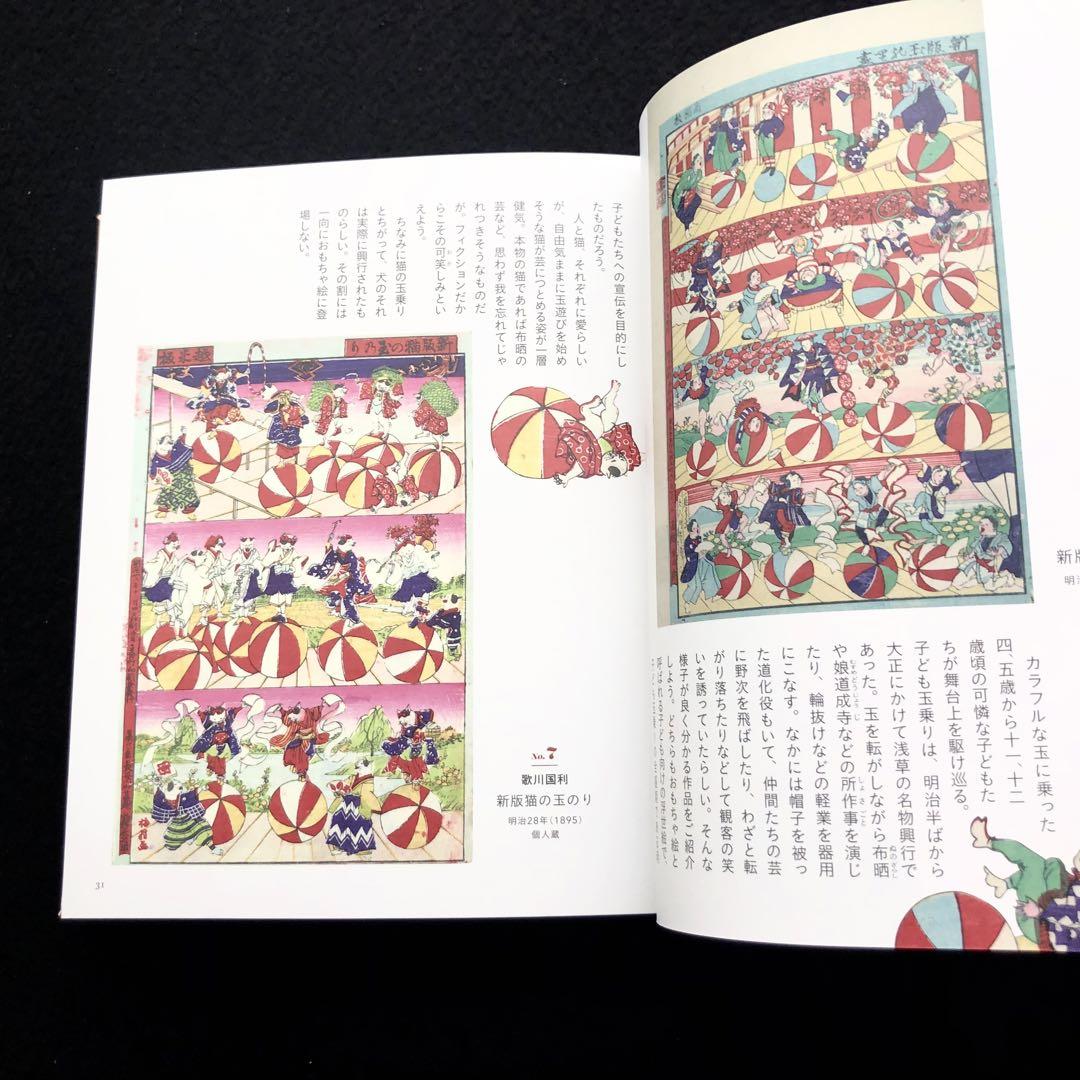 新版玉乗尽
カラフルな玉に乗った
四、五歳から十一、十二
歳頃の可憐な子どもた
ちが舞台上を駆け巡る。
子ども玉乗りは、明治半ばから
大正にかけて浅草の名物興行で
あった。玉を転がしながら布晒
や娘道成寺などの所作事を演じ
たり、輪抜けなどの軽業を器用
にこなす。なかには帽子を被っ
た道化役もいて、仲間たちの芸
に野次を飛ばしたり、わざと転
がり落ちたりなどして観客の笑
いを誘っていたらしい。そんな
様子が良く分かる作品をご紹介
しよう。どちらもおもちゃ絵と
呼ばれる子ども向けの浮世絵で、
新版
明治
子どもたちへの宣伝を目的にし
たものだろう。
人と猫、それぞれに愛らしい
が、自由気ままに玉遊びを始め
そうな猫が芸につとめる姿が一層
健気。本物の猫であれば布晒の
芸など、思わず我を忘れてじゃ
れつきそうなものだ
が。フィクションだか
らこその可笑しみとい
えよう。
ちなみに猫の玉乗り
とちがって、犬のそれ
は実際に興行されたも
のらしい。その割には
一向におもちゃ絵に登
場しない。
新版猫の玉乃り
No. 7
歌川国利
新版猫の玉のり
明治28年（1895）
個人蔵
31